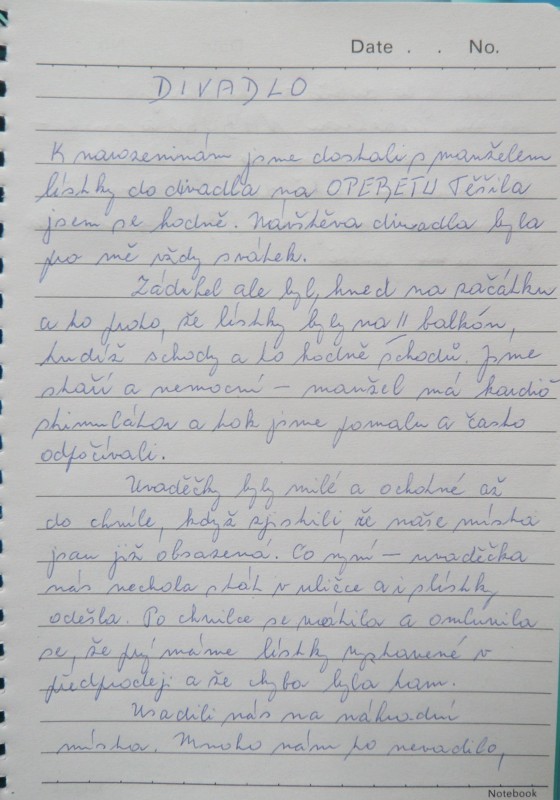 Date . . No.
DIVADLO
K narozeninám jsme dostali s manželem
lístky do divadla na OPERETU Těšila
jsem se hodně. Návštěva divadla byla
pro mě vždy svátek.
Zádrhel ale byl, hned na začátku
a to proto, že lístky byly na II balkón,
tudíž schody a to hodně schodů. Jsme
staří a nemocní – manžel má kardio
stimulátor a tak jsme pomalu a často
odpočívali.
Uvaděčky byly milé a ochotné až
do chvíle, když zjistili, že naše místa
jsou již obsazená. Co nyní – uvaděčka
nás nechala stát v uličce a i s lístky
odešla. Po chvilce se vrátila a omluvila
se, že prý máme lístky vystavené v
předprodeji a že chyba byla tam.
Usadili nás na náhradní
místa. Mnoho nám to nevadilo,
Notebook